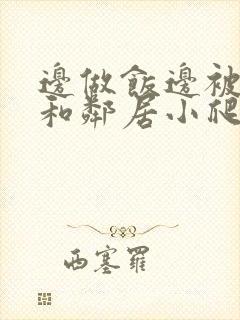 邊做飯邊被
和鄰居小爬
西塞羅